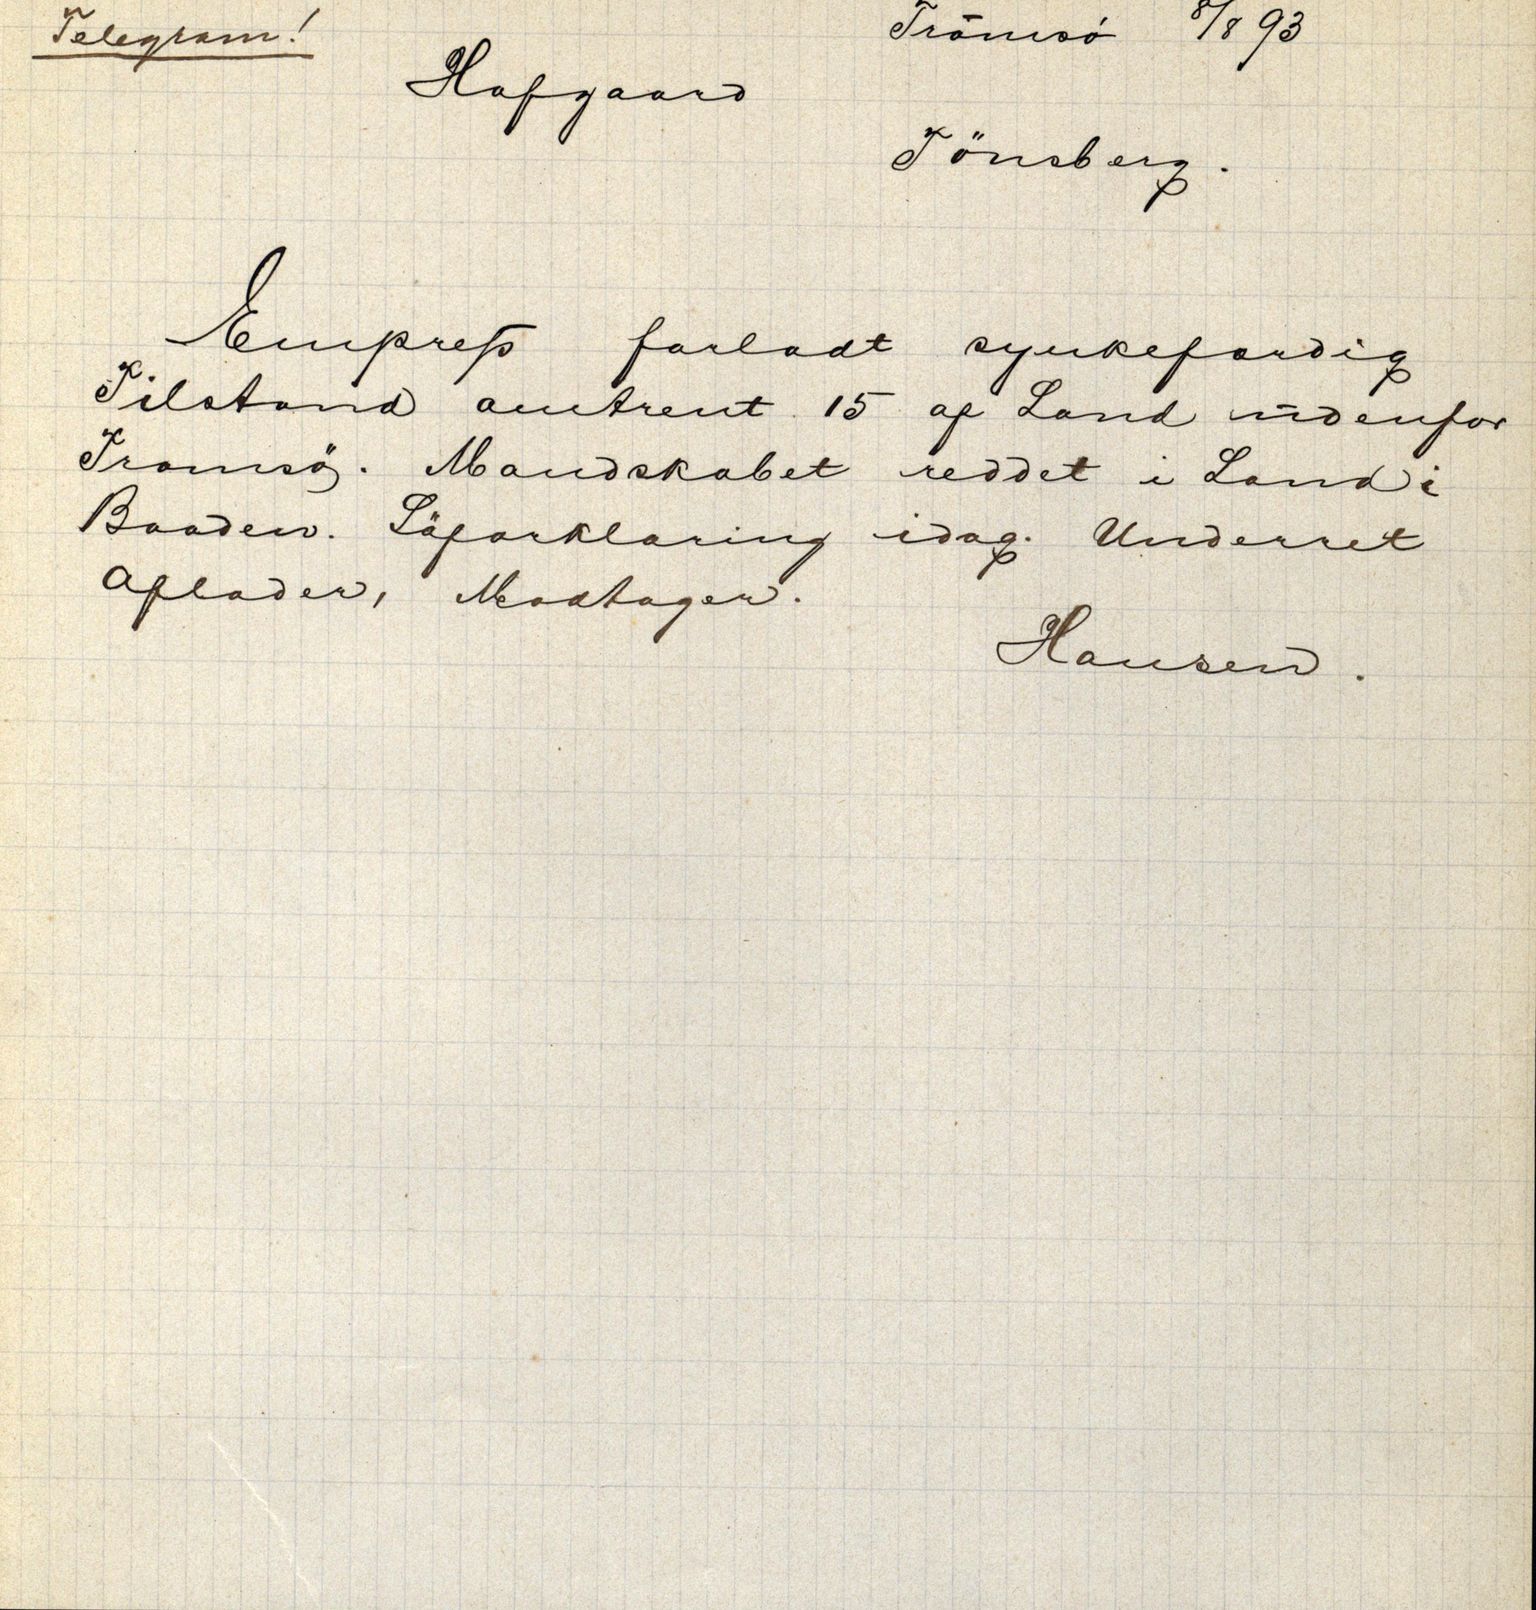 Telegram!
Tromsö 8/8 93
Hofgaard
Tönsberg.
Empress forladt synkefærdig
Tilstand omtrent 15 af Land udenfor
Tromsö. Mandskabet reddet i Land i
Baaden. Söforklaring idag. Underret
Aflader, Modtager.
Hansen.